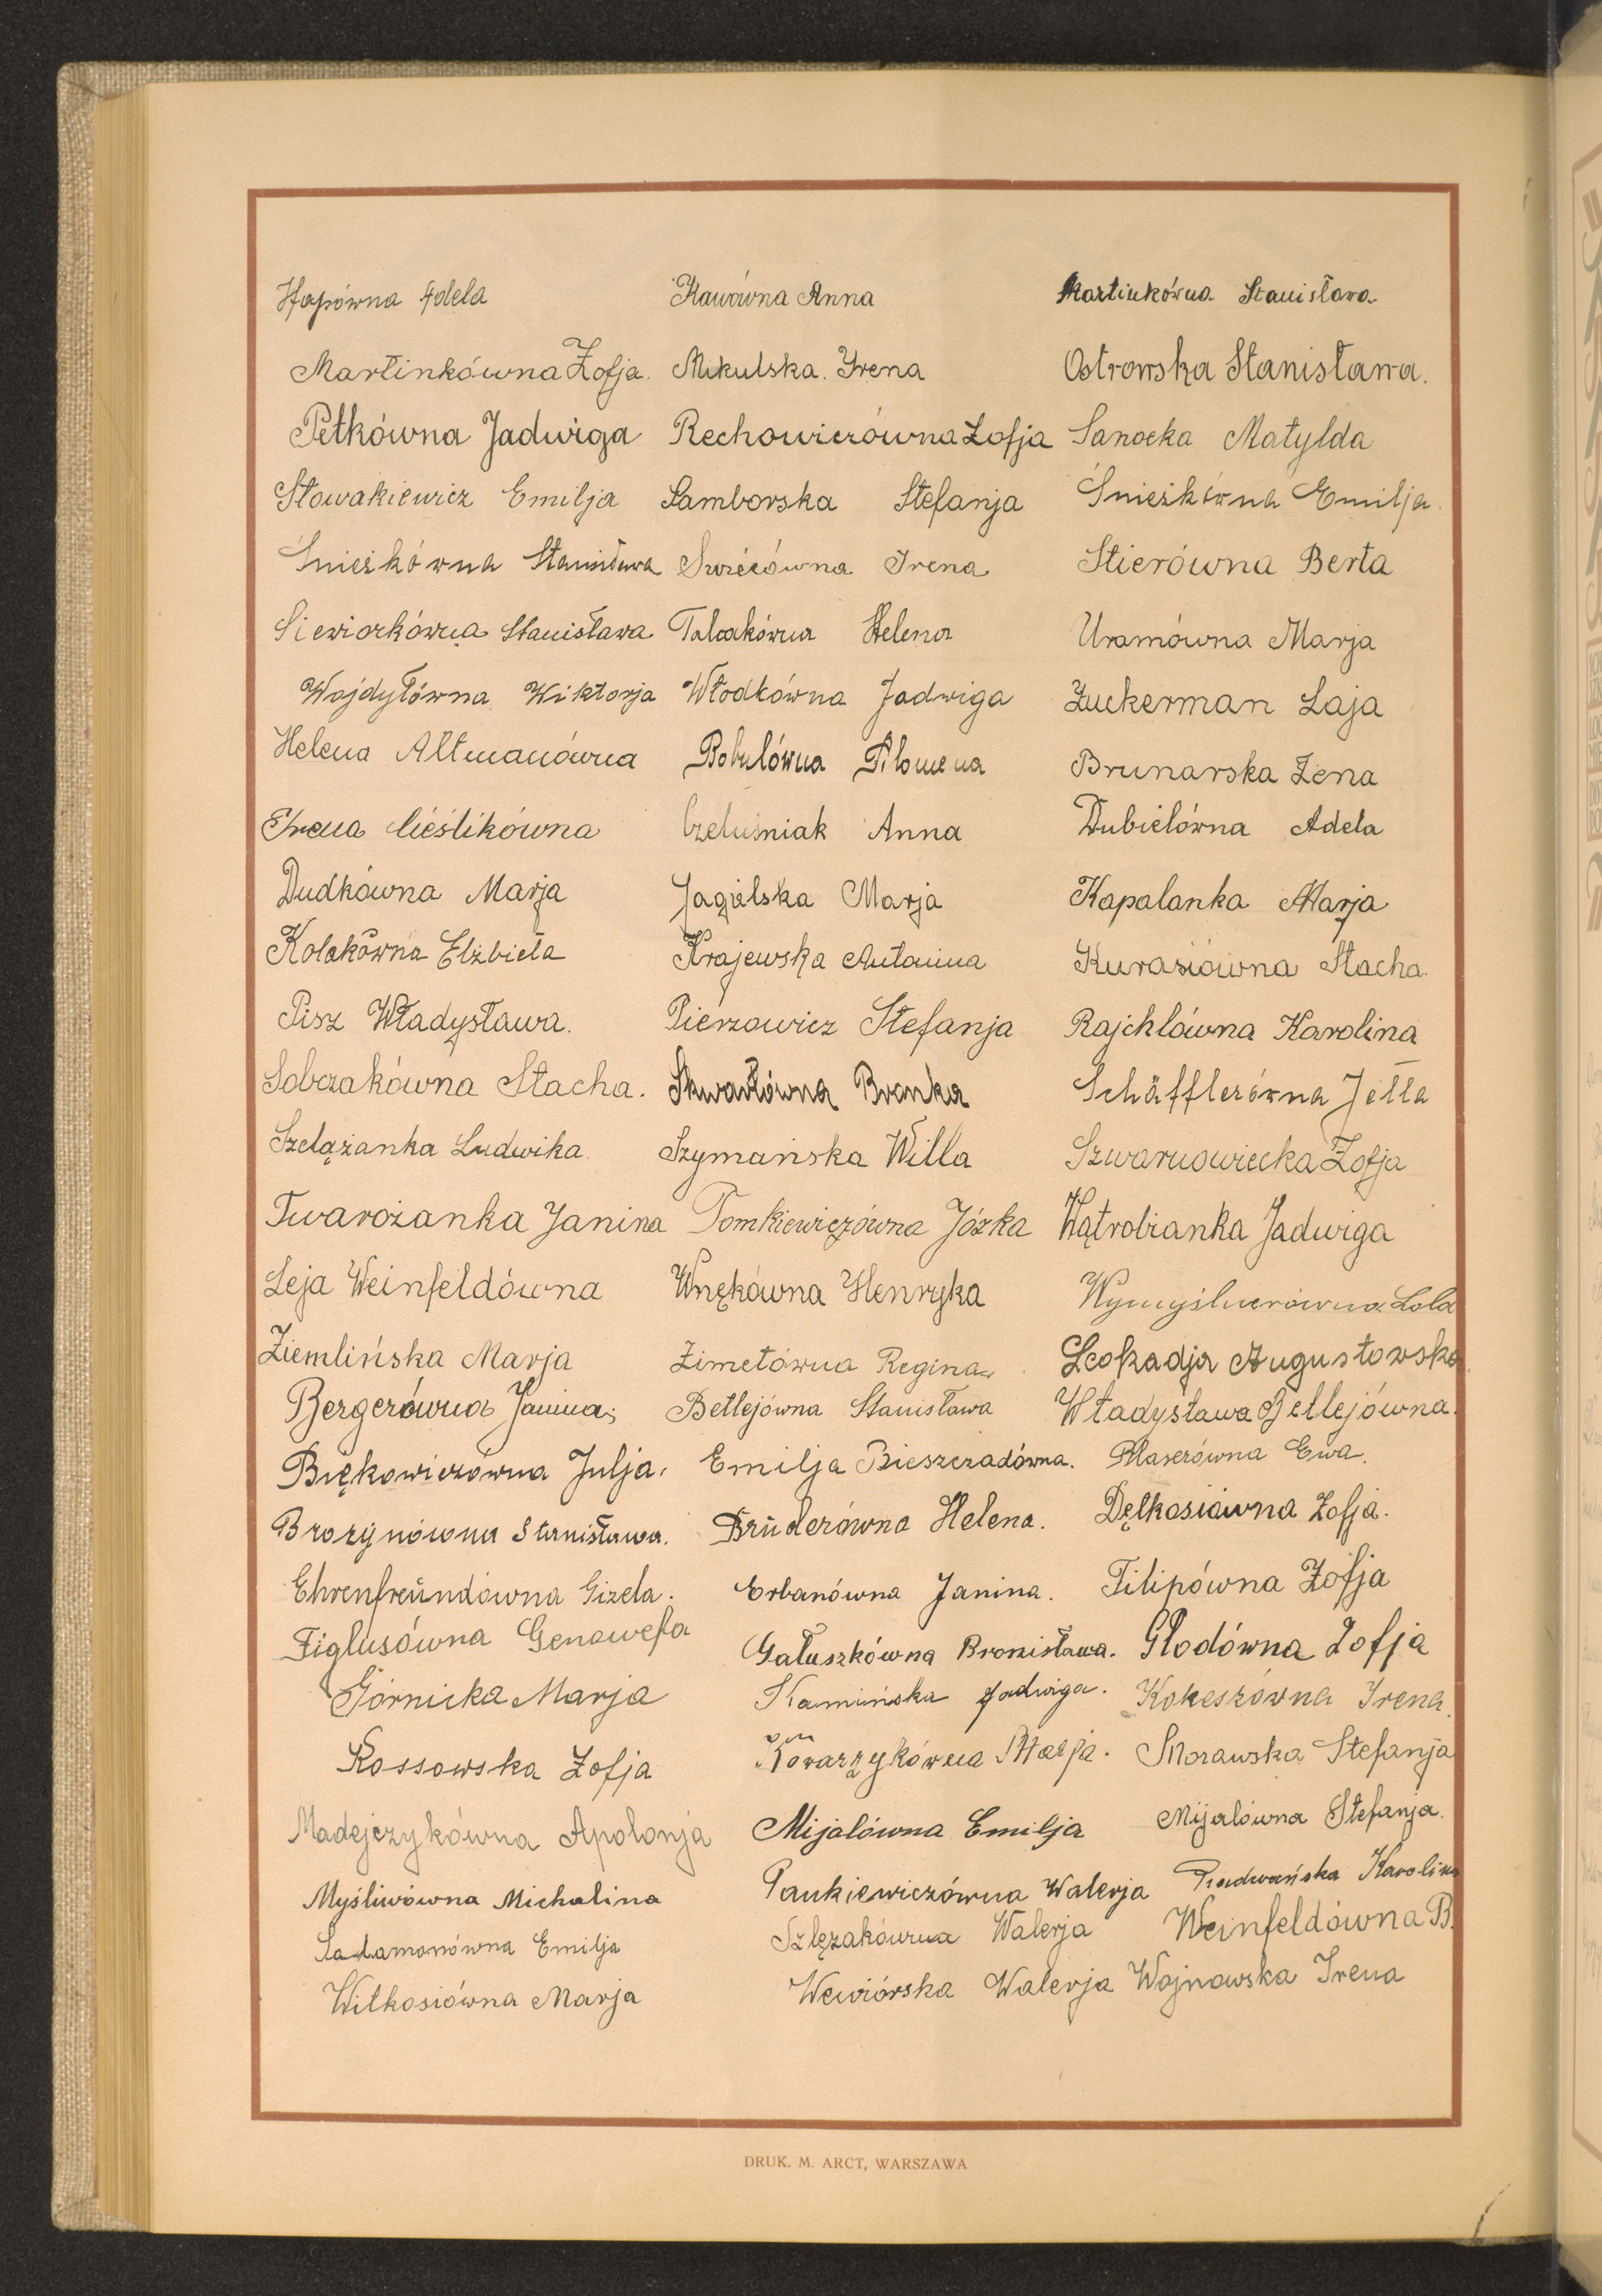 Hapówna Adela Kawówna Anna Martinkówna Stanisława
Martinkówna Zofja. Mikulska. Irena Ostrowska Stanisława.
Petkówna Jadwiga Rechowiczówna Zofja Sanocka Matylda
Słowakiewicz Emilja Samborska Stefanja Śnieżkówna Emilja.
Śnieżkówna Stanisława Szwécówna Irena Stierówna Berta
Siewiorkówna Stanisława Tabakówna Helena Uramówna Marja
Wojdyłówna Wiktorja Włodkówna Jadwiga Zuckerman Laja
Helena Altmanówna Bobulówna Filomena Brunarska Zena
Irena Cieślikówna Czeluśniak Anna Dubielówna Adela
Dudkówna Marja Jagielska Marja Kapalanka Marja
Kolakówna Elżbieta Krajewska Antonina Kurasiówna Stacha.
Pisz Władysława. Pierzowicz Stefanja Rajchlówna Karolina
Sobczakówna Stacha. Skwarłówna Bronka Schäfflerówna Jetta
Szelążanka Ludwika Szymańska Willa Szwarnowiecka Zofja
Twarożanka Janina Tomkiewiczówna Józka Wątrobianka Jadwiga
Leja Weinfeldówna Wnękówna Henryka Wymyślnerówna Lola
Ziemlińska Marja Zimetówna Regina Leokadja Augustowska
Bergerówna Janina; Betlejówna Stanisława Władysława Betlejówna.
Biękowiczówna Julja. Emilja Bieszczadówna. Blaserówna Ewa.
Brozynówna Stanisława. Brüderówna Helena. Dętkosiówna Zofja.
Ehrenfreundówna Gizela. Erbanówna Janina. Filipówna Zofja
Figlusówna Genowefa Gałuszkówna Bronisława. Głodówna Zofja
Górnicka Marja Kamińska Jadwiga. Kokeszówna Irena.
Kossowska Zofja Kowarzykówna Marja. Morawska Stefanja
Madejczykówna Apolonja Mijalówna Emilja Mijalówna Stefanja.
Myśliwówna Michalina Pankiewiczówna Walerja Radwańska Karolina
Sadamonówna Emilja Szlęzakówna Walerja Weinfeldówna B.
Witkosiówna Marja Wewiórska Walerja Wojnowska Irena
DRUK. M. ARCT, WARSZAWA